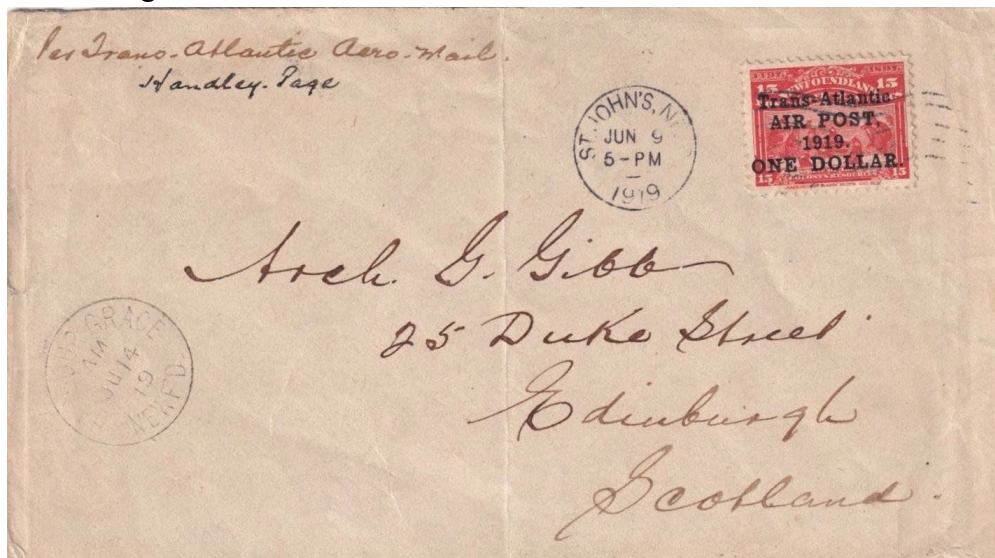 Per Trans-Atlantic Aero-Mail.
Handley-Page
ST. JOHN'S, N
JUN 9
5-PM
1919
15 15
NEWFOUNDLAND
Trans-Atlantic
AIR POST,
1919.
ONE DOLLAR.
15 15
Arch. G. Gibb
25 Duke Street
Edinburgh
Scotland.
GRACE
AM
JU 14
19
NEWF'D